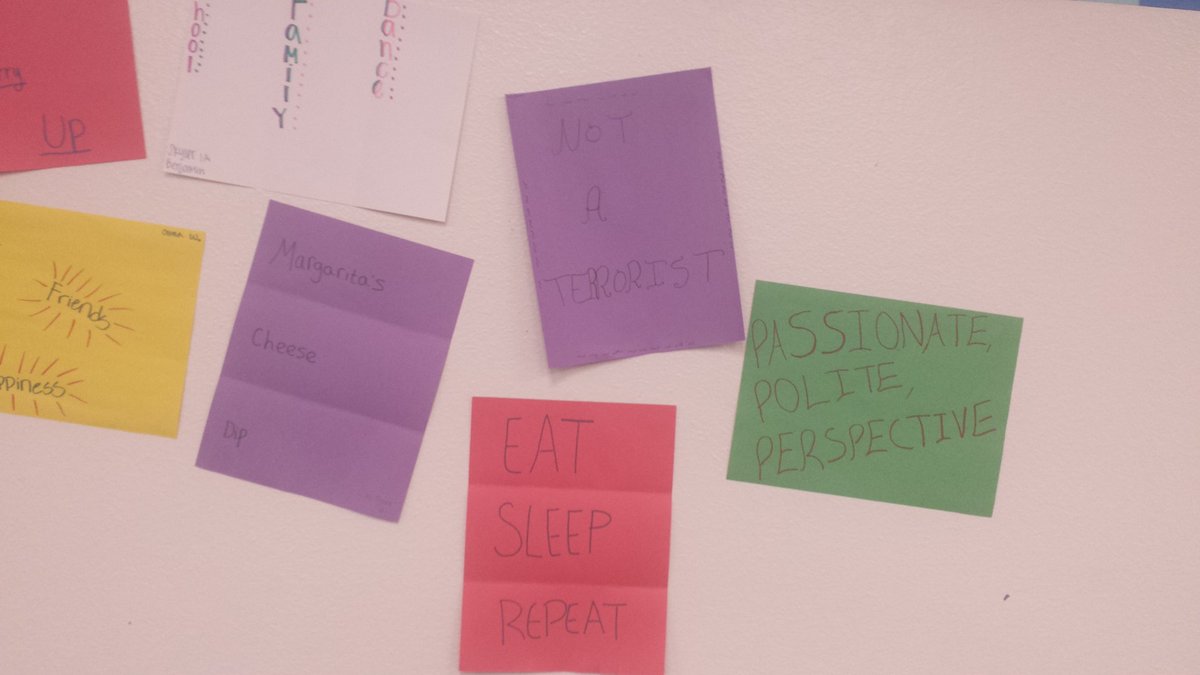 UP
hool
Family
Dance
Benjamin
Friends
ppiness
Margarita's
Cheese
Dip
NOT
A
TERRORIST
EAT
SLEEP
REPEAT
PASSIONATE,
POLITE,
PERSPECTIVE